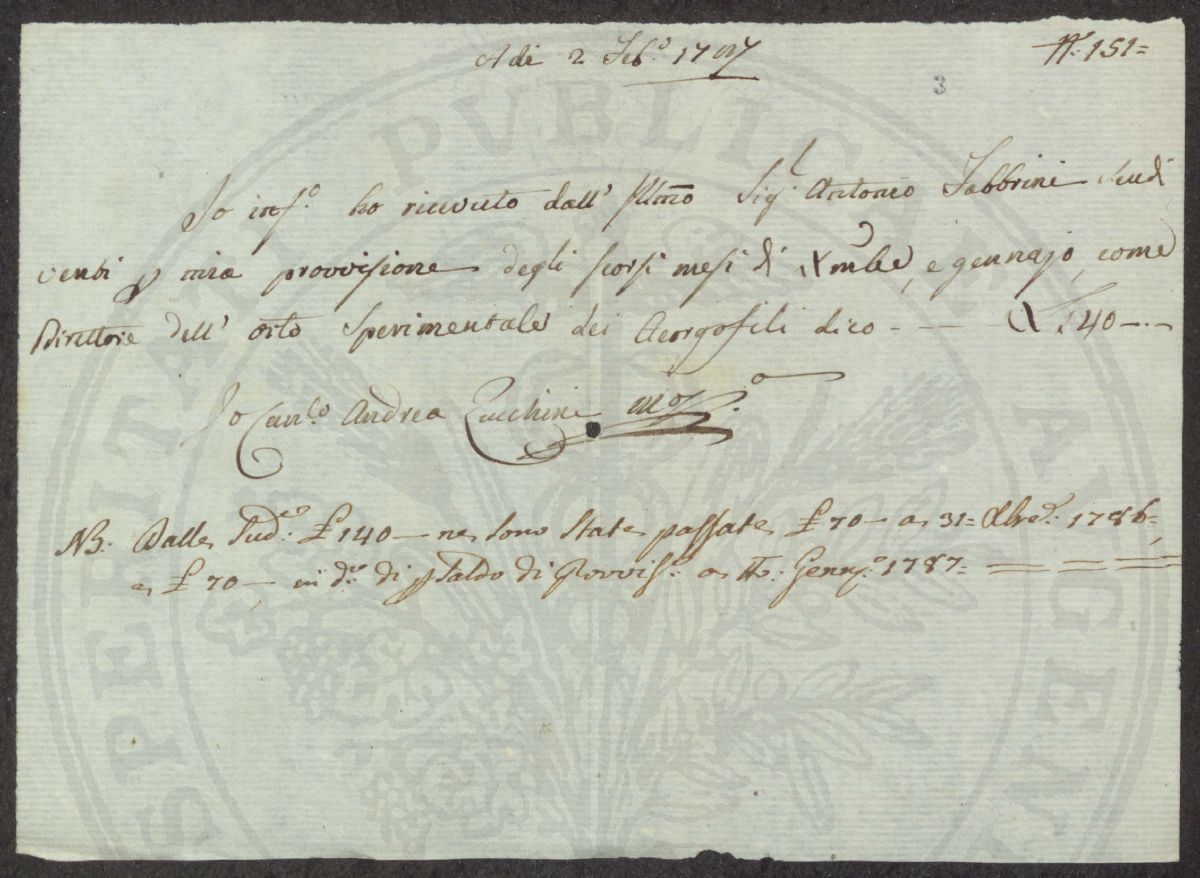 A dì 2 Feb.º 1787
N.º 151=
3
Io inf.º ho ricevuto dall' Illmo Sig.r Antonio Fabbrini Scudi
venti p mia provvisione degli scorsi mesi di Xmbre, e gennajo, come
Direttore dell' orto Sperimentale dei Georgofili dico - - - 140 -.-
Io Can.co Andrea Zucchini
NB. Dalle Sud.e £ 140 - ne sono state passate £ 70 - a 31= Xbre 1786=,
e £ 70 - in d.º di p saldo di Provvis.e a Genn.º 1787=
PROSPERITATI PUBLICAE AUGENDAE